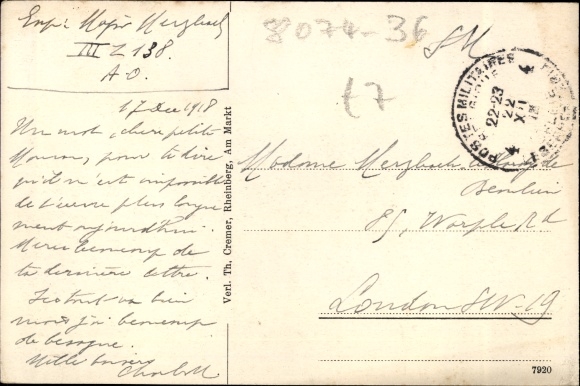 Exp: Major Merzbach
III Z 138.
A.O.
17 Dec 1918
Un mot, chère petite
Maman, pour te dire
qu'il m'est impossible
de t'écrire plus longue
ment aujourd'hui.
Merci beaucoup de
ta dernière lettre.
Ici tout va bien
mais j'ai beaucoup
de besogne.
Mille baisers
Verl. Th. Cremer, Rheinberg, Am Markt
8074-36
SM
17
POSTES MILITAIRES
22-23
22
XII
Madame Merzbach
85, Warple Rd
London SW-19
7920